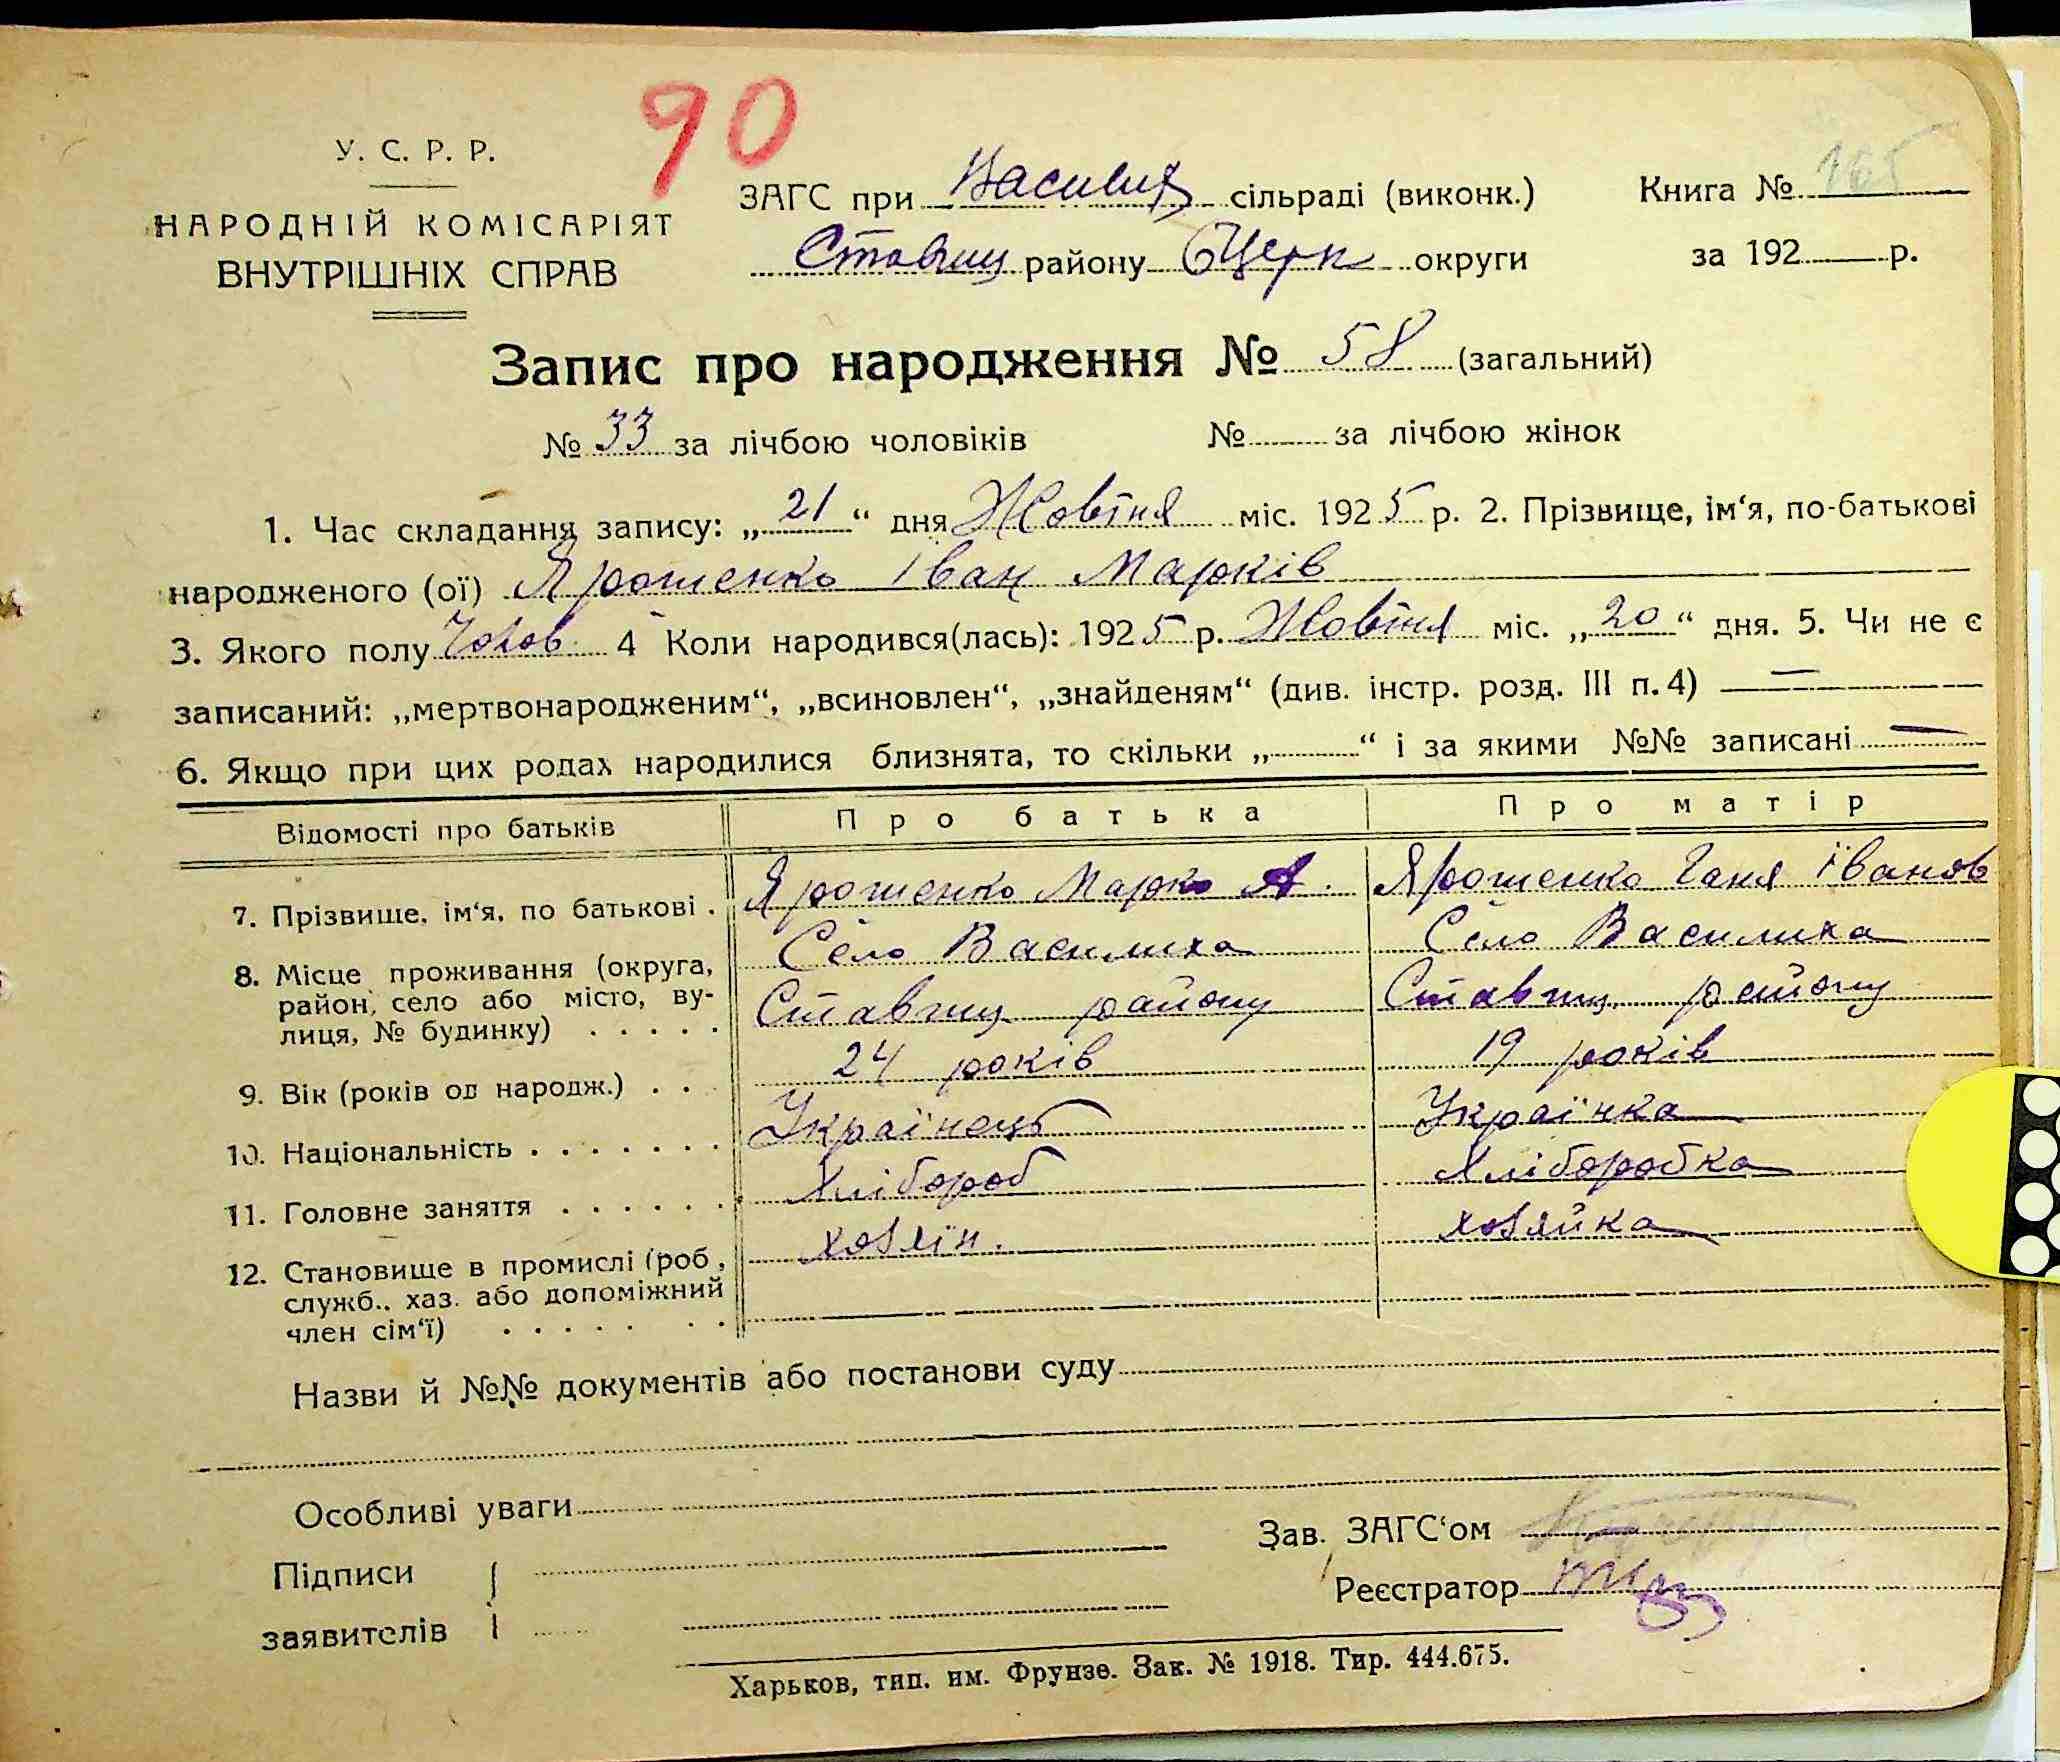 90
У. С. Р. Р.
НАРОДНІЙ КОМІСАРІЯТ
ВНУТРІШНІХ СПРАВ
ЗАГС при Василих сільраді (виконк.)
Ставищ району БЦерк округи
Книга № 165
за 192 р.
Запис про народження № 58 (загальний)
№ 33 за лічбою чоловіків № за лічбою жінок
1. Час складання запису: „21“ дня Жовтня міс. 1925 р. 2. Прізвище, ім‘я, по-батькові
народженого (ої) Ярошенко Іван Марків
3. Якого полу Чолов. 4 Коли народився(лась): 1925 р. Жовтня міс. „20“ дня. 5. Чи не є
записаний: „мертвонародженим“, „всиновлен“, „знайденям“ (див. інстр. розд. III п. 4) —
6. Якщо при цих родах народилися близнята, то скільки „ “ і за якими №№ записані —
Відомості про батьків
Про батька
Про матір
7. Прізвище, ім‘я, по батькові .
Ярошенко Марко А.
Ярошенко Ганя Іванов
8. Місце проживання (округа,
район, село або місто, ву-
лиця, № будинку) . . . . .
Село Василиха
Ставищ району
Село Василиха
Ставищ. району
9. Вік (років од народж.) . .
24 років
19 років
10. Національність . . . . . . .
Українець
Українка
11. Головне заняття . . . . . .
Хлібороб
Хліборобка
12. Становище в промислі (роб ,
служб., хаз. або допоміжний
член сім‘ї) . . . . . . .
хозяїн.
хозяйка
Назви й №№ документів або постанови суду
Особливі уваги
Підписи
заявителів
Зав. ЗАГС‘ом
Реєстратор
Харьков, тип. им. Фрунзе. Зак. № 1918. Тир. 444.675.